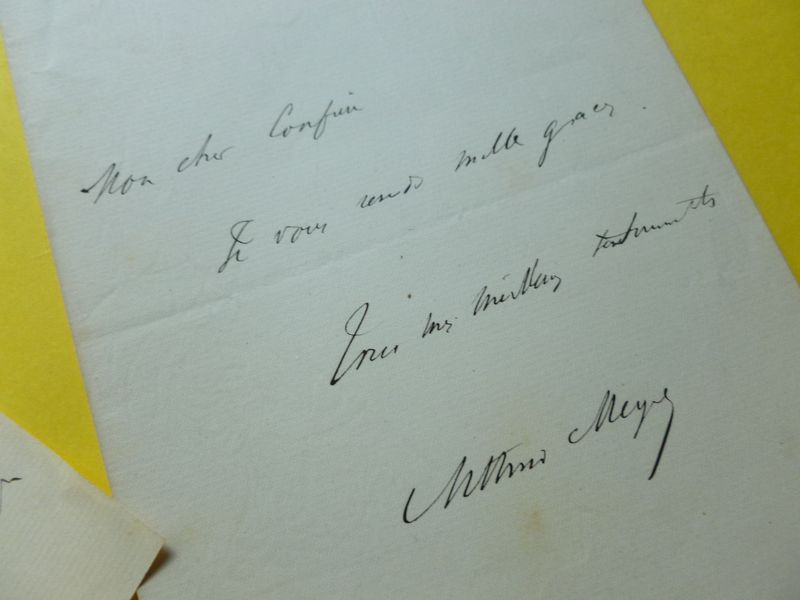 Mon cher Confrère
Je vous rends mille graces.
Tous mes meilleurs sentiments
Arthur Meyer